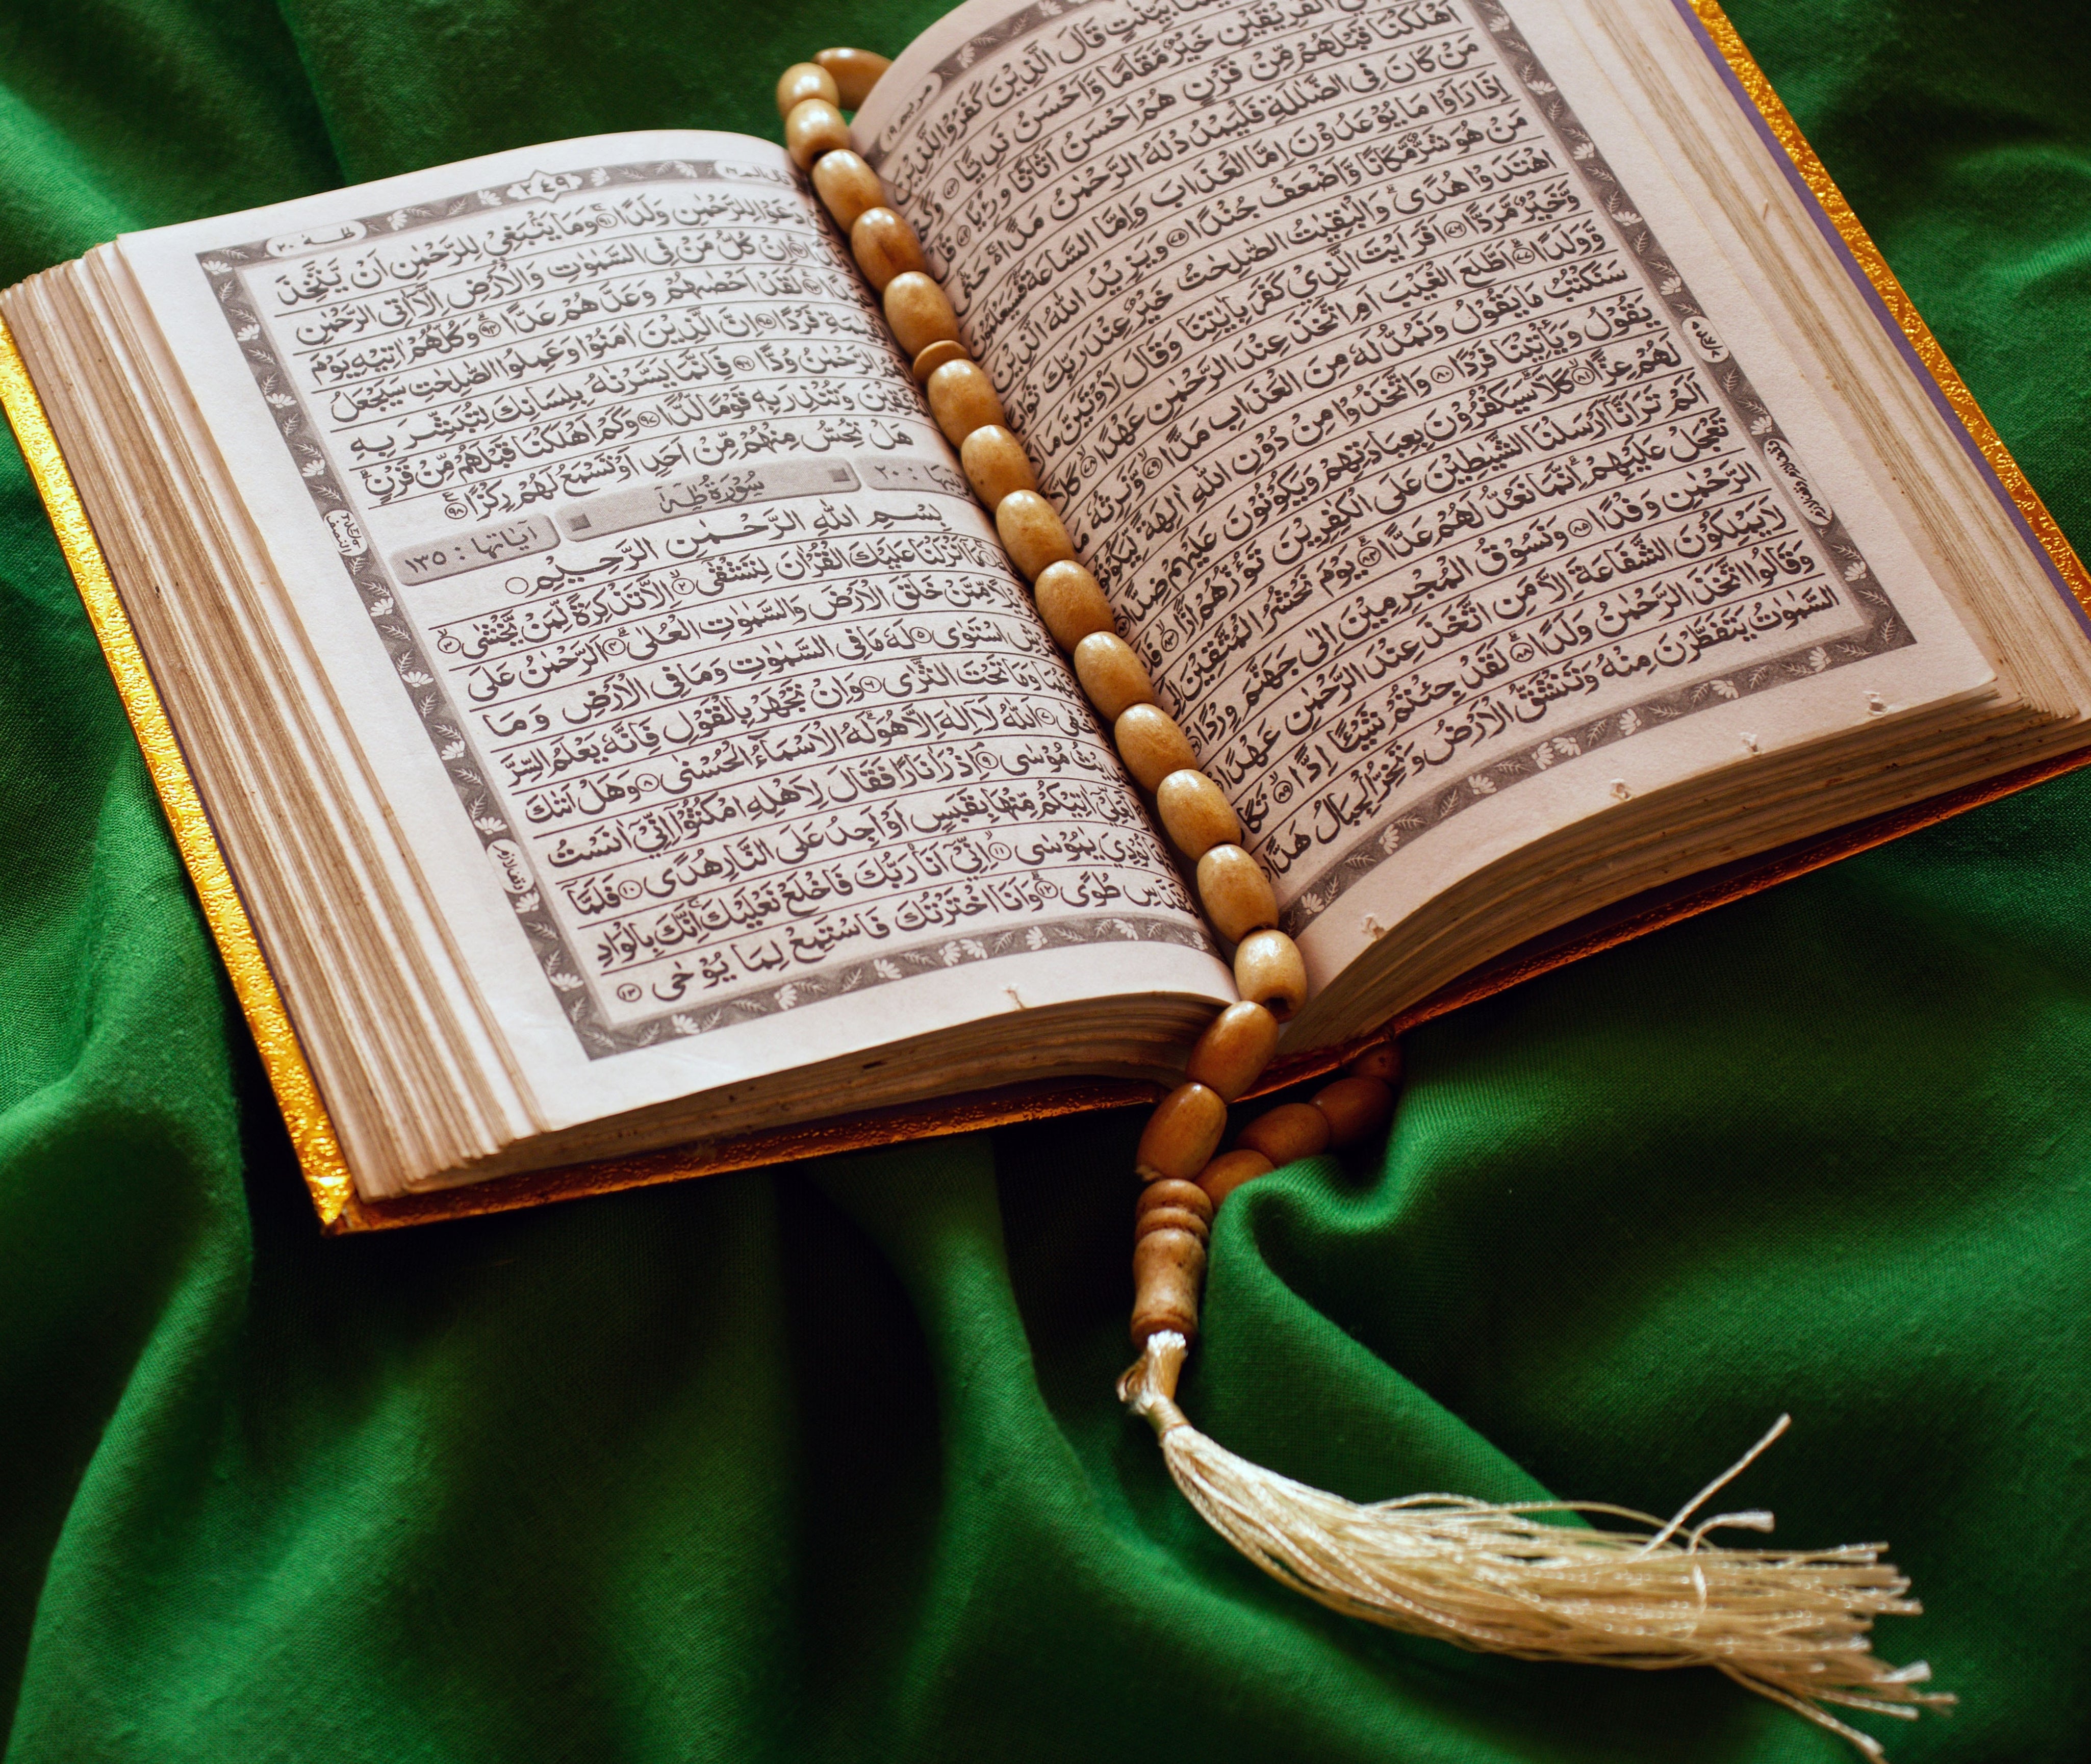 مريم ١٩
بَيِّنٰتٍ قَالَ الَّذِيْنَ كَفَرُوْا لِلَّذِيْنَ
الْفَرِيْقَيْنِ خَيْرٌ مَّقَامًا وَّاَحْسَنُ نَدِيًّا ﴿٧٣﴾ وَكَمْ
اَهْلَكْنَا قَبْلَهُمْ مِّنْ قَرْنٍ هُمْ اَحْسَنُ اَثَاثًا وَّرِءْيًا ﴿٧٤﴾ قُلْ
مَنْ كَانَ فِي الضَّلٰلَةِ فَلْيَمْدُدْ لَهُ الرَّحْمٰنُ مَدًّا ۚ حَتّٰۤى
اِذَا رَاَوْا مَا يُوْعَدُوْنَ اِمَّا الْعَذَابَ وَاِمَّا السَّاعَةَ فَسَيَعْلَمُوْنَ
مَنْ هُوَ شَرٌّ مَّكَانًا وَّاَضْعَفُ جُنْدًا ﴿٧٥﴾ وَيَزِيْدُ اللهُ الَّذِيْنَ
اهْتَدَوْا هُدًى ؕ وَالْبٰقِيٰتُ الصّٰلِحٰتُ خَيْرٌ عِنْدَ رَبِّكَ ثَوَابًا
وَّخَيْرٌ مَّرَدًّا ﴿٧٦﴾ اَفَرَاَيْتَ الَّذِيْ كَفَرَ بِاٰيٰتِنَا وَقَالَ لَاُوْتَيَنَّ
وَّوَلَدًا ﴿٧٧﴾ اَطَّلَعَ الْغَيْبَ اَمِ اتَّخَذَ عِنْدَ الرَّحْمٰنِ عَهْدًا ﴿٧٨﴾ كَلَّا
سَنَكْتُبُ مَا يَقُوْلُ وَنَمُدُّ لَهٗ مِنَ الْعَذَابِ مَدًّا ﴿٧٩﴾ وَّنَرِثُهٗ مَا
يَقُوْلُ وَيَاْتِيْنَا فَرْدًا ﴿٨٠﴾ وَاتَّخَذُوْا مِنْ دُوْنِ اللهِ اٰلِهَةً لِّيَكُوْنُوْا
لَهُمْ عِزًّا ﴿٨١﴾ كَلَّا ؕ سَيَكْفُرُوْنَ بِعِبَادَتِهِمْ وَيَكُوْنُوْنَ عَلَيْهِمْ ضِدًّا ﴿٨٢﴾
اَلَمْ تَرَ اَنَّاۤ اَرْسَلْنَا الشَّيٰطِيْنَ عَلَى الْكٰفِرِيْنَ تَؤُزُّهُمْ اَزًّا ﴿٨٣﴾ فَلَا
تَعْجَلْ عَلَيْهِمْ ؕ اِنَّمَا نَعُدُّ لَهُمْ عَدًّا ﴿٨٤﴾ يَوْمَ نَحْشُرُ الْمُتَّقِيْنَ اِلَى
الرَّحْمٰنِ وَفْدًا ﴿٨٥﴾ وَّنَسُوْقُ الْمُجْرِمِيْنَ اِلٰى جَهَنَّمَ وِرْدًا ﴿٨٦﴾
لَا يَمْلِكُوْنَ الشَّفَاعَةَ اِلَّا مَنِ اتَّخَذَ عِنْدَ الرَّحْمٰنِ عَهْدًا ﴿٨٧﴾
وَقَالُوا اتَّخَذَ الرَّحْمٰنُ وَلَدًا ﴿٨٨﴾ لَقَدْ جِئْتُمْ شَيْـًٔا اِدًّا ﴿٨٩﴾
السَّمٰوٰتُ يَتَفَطَّرْنَ مِنْهُ وَتَنْشَقُّ الْاَرْضُ وَتَخِرُّ الْجِبَالُ هَدًّا
٣٤٩
طٰهٰ ٢٠
دَعَوْا لِلرَّحْمٰنِ وَلَدًا ﴿٩١﴾ وَمَا يَنْۢبَغِيْ لِلرَّحْمٰنِ اَنْ يَّتَّخِذَ
وَلَدًا ﴿٩٢﴾ اِنْ كُلُّ مَنْ فِي السَّمٰوٰتِ وَالْاَرْضِ اِلَّاۤ اٰتِي الرَّحْمٰنِ
عَبْدًا ﴿٩٣﴾ لَقَدْ اَحْصٰىهُمْ وَعَدَّهُمْ عَدًّا ﴿٩٤﴾ وَكُلُّهُمْ اٰتِيْهِ يَوْمَ
فَرْدًا ﴿٩٥﴾ اِنَّ الَّذِيْنَ اٰمَنُوْا وَعَمِلُوا الصّٰلِحٰتِ سَيَجْعَلُ
الرَّحْمٰنُ وُدًّا ﴿٩٦﴾ فَاِنَّمَا يَسَّرْنٰهُ بِلِسَانِكَ لِتُبَشِّرَ بِهِ
وَتُنْذِرَ بِهٖ قَوْمًا لُّدًّا ﴿٩٧﴾ وَكَمْ اَهْلَكْنَا قَبْلَهُمْ مِّنْ قَرْنٍ
هَلْ تُحِسُّ مِنْهُمْ مِّنْ اَحَدٍ اَوْ تَسْمَعُ لَهُمْ رِكْزًا ﴿٩٨﴾
٢٠ سُوْرَةُ طٰهٰ اٰيَاتُهَا : ١٣٥
بِسْمِ اللهِ الرَّحْمٰنِ الرَّحِيْمِ
اَنْزَلْنَا عَلَيْكَ الْقُرْاٰنَ لِتَشْقٰۤى ﴿٢﴾ اِلَّا تَذْكِرَةً لِّمَنْ يَّخْشٰى ﴿٣﴾
مِّمَّنْ خَلَقَ الْاَرْضَ وَالسَّمٰوٰتِ الْعُلٰى ﴿٤﴾ اَلرَّحْمٰنُ عَلَى
اسْتَوٰى ﴿٥﴾ لَهٗ مَا فِي السَّمٰوٰتِ وَمَا فِي الْاَرْضِ وَمَا
وَمَا تَحْتَ الثَّرٰى ﴿٦﴾ وَاِنْ تَجْهَرْ بِالْقَوْلِ فَاِنَّهٗ يَعْلَمُ السِّرَّ
﴿٧﴾ اَللهُ لَاۤ اِلٰهَ اِلَّا هُوَ ؕ لَهُ الْاَسْمَآءُ الْحُسْنٰى ﴿٨﴾ وَهَلْ اَتٰىكَ
مُوْسٰى ﴿٩﴾ اِذْ رَاٰ نَارًا فَقَالَ لِاَهْلِهِ امْكُثُوْۤا اِنِّيْۤ اٰنَسْتُ
اٰتِيْكُمْ مِّنْهَا بِقَبَسٍ اَوْ اَجِدُ عَلَى النَّارِ هُدًى ﴿١٠﴾ فَلَمَّاۤ
نُوْدِيَ يٰمُوْسٰى ﴿١١﴾ اِنِّيْۤ اَنَا رَبُّكَ فَاخْلَعْ نَعْلَيْكَ ۚ اِنَّكَ بِالْوَادِ
طُوًى ﴿١٢﴾ وَاَنَا اخْتَرْتُكَ فَاسْتَمِعْ لِمَا يُوْحٰى ﴿١٣﴾